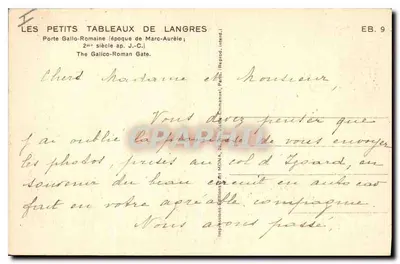 I
LES PETITS TABLEAUX DE LANGRES
EB. 9
Porte Gallo-Romaine (époque de Marc-Aurèle;
2me siècle ap. J.-C.)
The Galico-Roman Gate.
Chers Madame et Monsieur,
Vous devez penser que
j'ai oublié la promesse de vous envoyer
les photos, prises au col d'Izoard, en
souvenir du beau circuit en auto car
fait en votre agréable compagnie.
Nous avons passé,